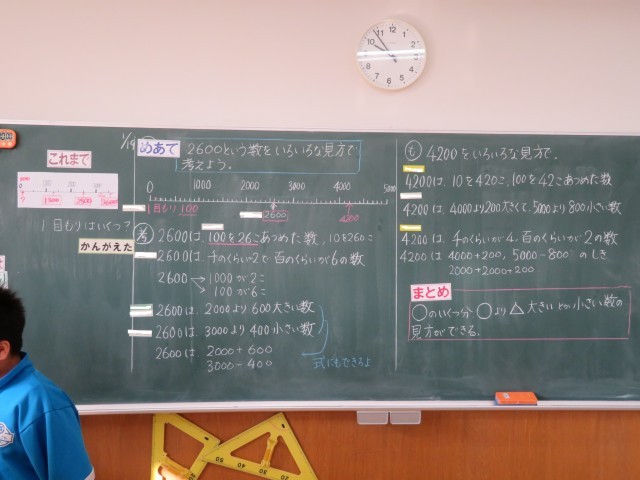 これまで
1目もりはいくつ?
かんがえた
1/19
めあて
2600という数をいろいろな見方で
考えよう。
0 1000 2000 3000 4000 5000
1目もり 100
2600
4200
考 2600は、100を26こあつめた数、10を260こ
2600は 千のくらいが2で 百のくらいが6の数
2600 → 1000が2こ
→ 100が6こ
2600は、2000より600大きい数
2600は、3000より400小さい数
2600は、2000+600
3000-400
式にもできるよ
も 4200をいろいろな見方で。
4200は、10を420こ、100を42こあつめた数
4200は、4000より200大きくて、5000より800小さい数
4200は、千のくらいが4、百のくらいが2の数
4200は、4000+200、5000-800のしき
2000+2000+200
まとめ
○のいくつ分、○より△大きいとか小さい数の
見方ができる。
12 1 2 3 4 5 6 7 8 9 10 11